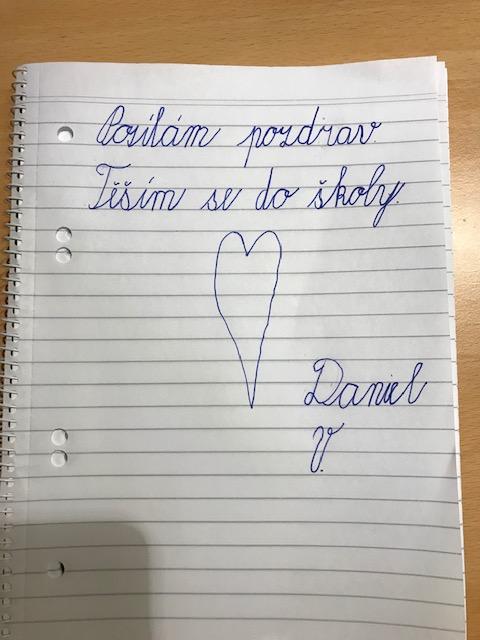 Posílám pozdrav.
Těším se do školy.
Daniel
V.